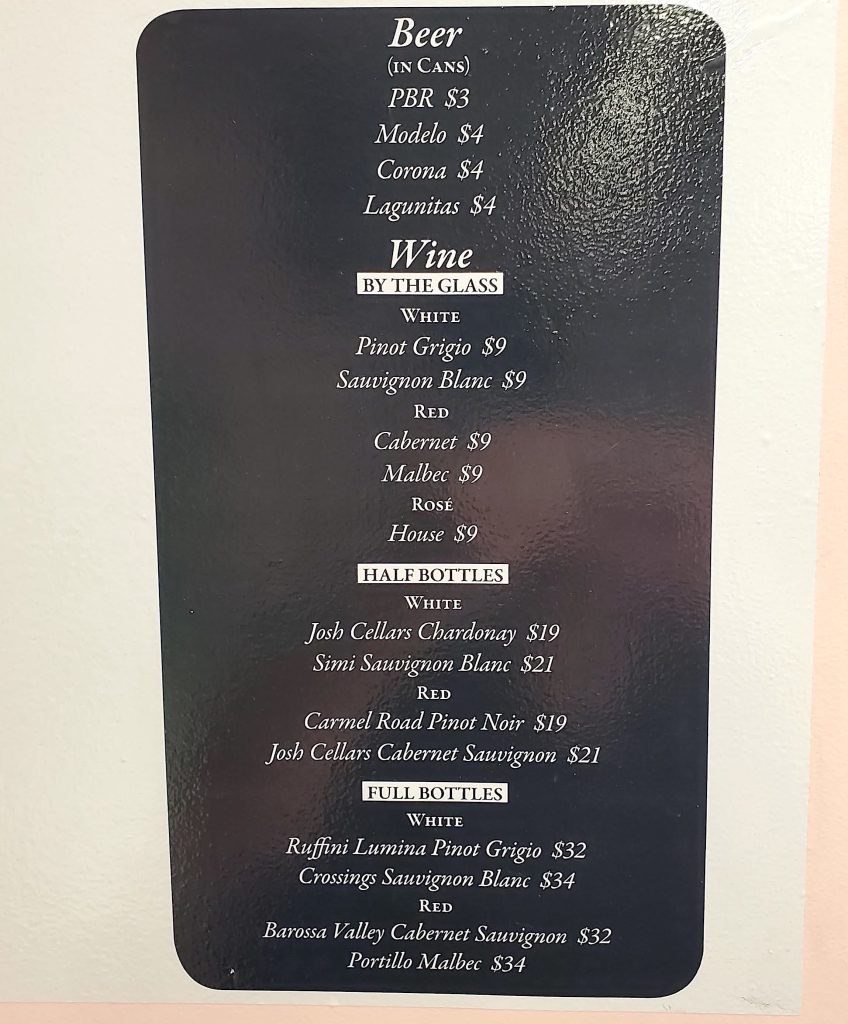 Beer
(IN CANS)
PBR $3
Modelo $4
Corona $4
Lagunitas $4
Wine
BY THE GLASS
WHITE
Pinot Grigio $9
Sauvignon Blanc $9
RED
Cabernet $9
Malbec $9
ROSÉ
House $9
HALF BOTTLES
WHITE
Josh Cellars Chardonay $19
Simi Sauvignon Blanc $21
RED
Carmel Road Pinot Noir $19
Josh Cellars Cabernet Sauvignon $21
FULL BOTTLES
WHITE
Ruffini Lumina Pinot Grigio $32
Crossings Sauvignon Blanc $34
RED
Barossa Valley Cabernet Sauvignon $32
Portillo Malbec $34